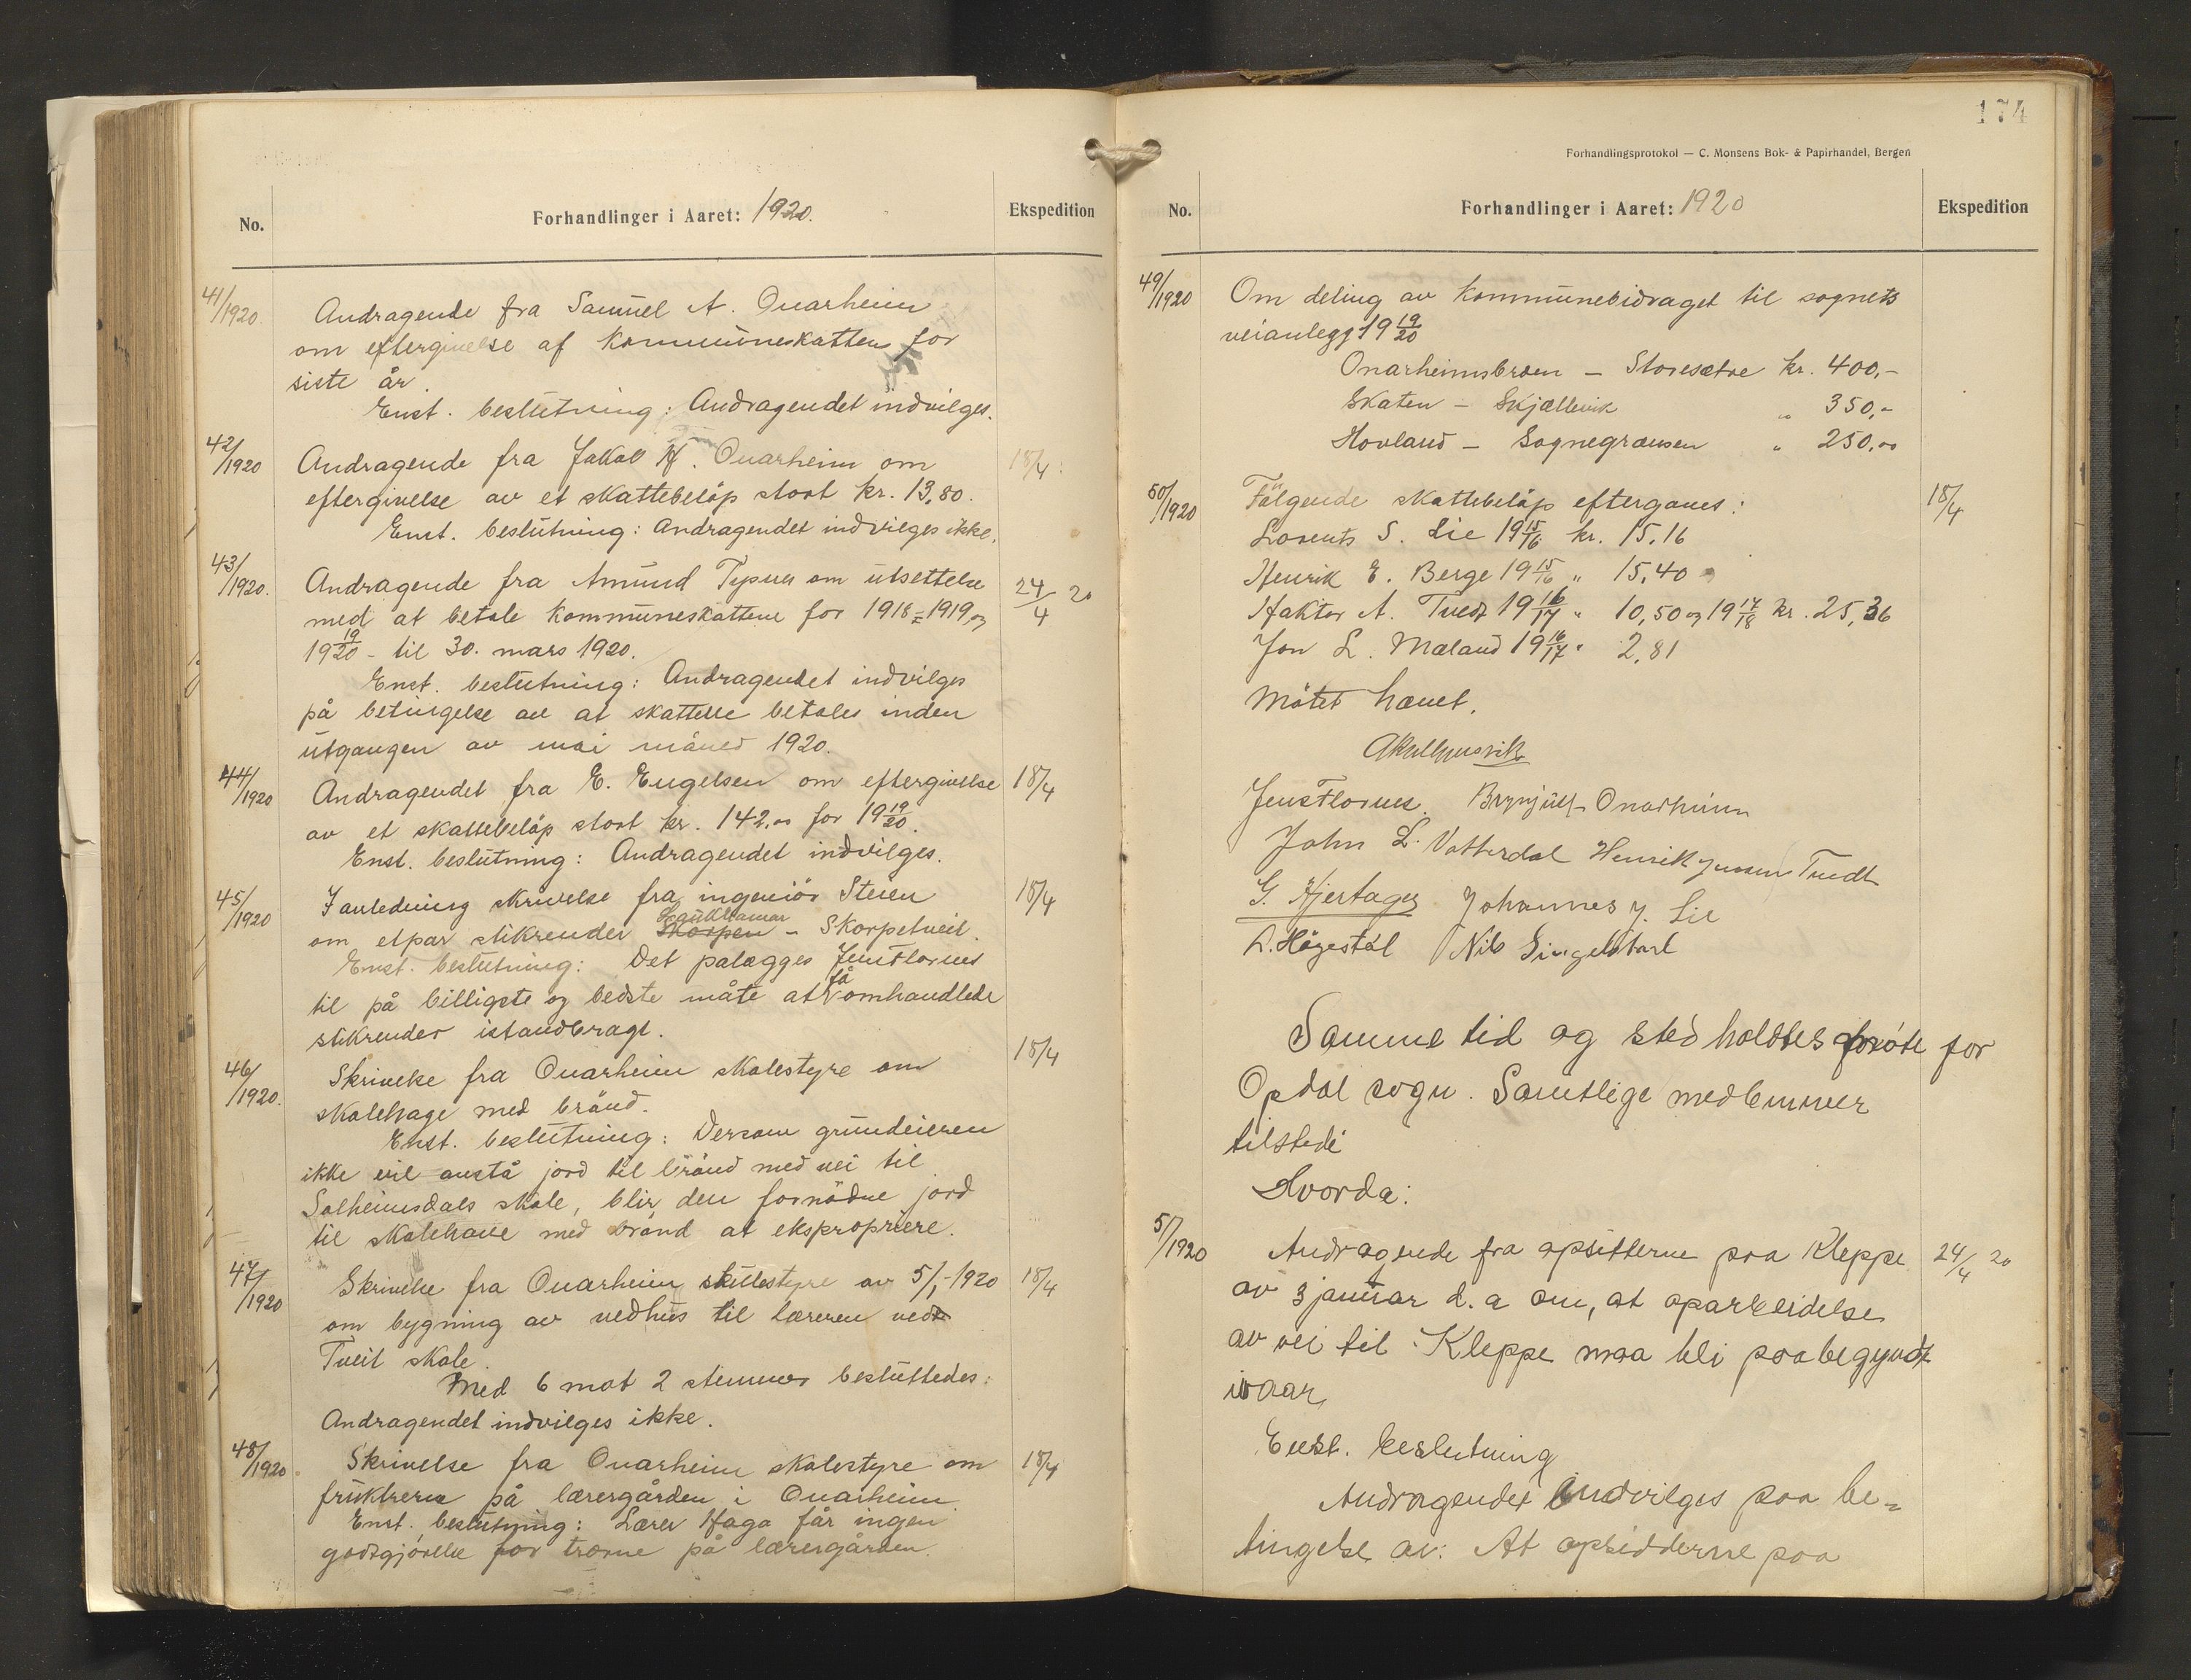 No.
Forhandlinger i Aaret: 1920.
Ekspedition
41/1920
Andragende fra Samuel A. Onarheim
om eftergivelse af kommuneskatten for
siste år.
Enst. beslutning: Andragendet indvilges.
42/1920
Andragende fra Jakob H. Onarheim om
18/4
eftergivelse av et skattebeløp stort kr. 13,80.
Enst. beslutning: Andragendet indvilges ikke.
43/1920.
Andragende fra Amund Tysnes om utsettelse
24/4 20
med at betale kommuneskattene for 1918-1919 og
19 19/20 - til 30. mars 1920.
Enst. beslutning: Andragendet indvilges
på betingelse av at skattene betales inden
utgangen av mai måned 1920.
44/1920
Andragendet fra E. Engelsen om eftergivelse
18/4
av et skattebeløp stort kr. 142,00 for 19 19/20.
Enst. beslutning: Andragendet indvilges.
45/1920
I anledning skrivelse fra ingeniör Steien
18/4
om etpar stikrender Skorpen Laukhamar - Skorpetveit.
Enst. beslutning: Det palægges Jens Flornes
til på billigste og bedste måte at få omhandlede
stikrender istandbragt.
46/1920.
Skrivelse fra Onarheim skolestyre om
18/4
skolehage med brönd.
Enst. beslutning: Dersom grundeieren
ikke vil avstå jord til brönd med vei til
Solheimsdals skole, blir den fornödne jord
til skolehave med brönd at ekspropriere.
47/1920
Skrivelse fra Onarheim skolestyre av 5/1-1920
18/4
om bygning av vedhus til læreren ved
Tveit skole.
Med 6 mot 2 stemmer besluttedes:
Andragendet indvilges ikke.
48/1920.
Skrivelse fra Onarheim skolestyre om
18/4
frukttrerne på lærergården i Onarheim.
Enst. beslutning: Lærer Haga får ingen
godtgjörelse for trærne på lærergården.
174
Forhandlingsprotokol — C. Monsens Bok- & Papirhandel, Bergen
No.
Forhandlinger i Aaret: 1920
Ekspedition
49/1920
Om deling av kommunebidraget til sognets
veianlegg 19 19/20
Onarheimsbroen - Storesætre kr. 400,-
Skaten - Skjællevik " 350,-
Hovland - Sognegrænsen " 250,00
50/1920
Fölgende skattebeløp eftergaves:
18/4
Lorents S. Lie 19 15/16 kr. 15,16
Henrik E. Berge 19 15/16 " 15,40
Haktor A. Tvedt 19 16/17 " 10,50 og 19 17/18 kr. 25,36
Jon L. Mæland 19 16/17 " 2,81
Mötet hævet.
Jens Flornes. Brynjulf Onarheim
John L. Vatterdal Henrik Jensen Tvedt
G. Hjertager Johannes J. Lie
L. Högestöl Nils Singelstad
Samme tid og sted holdtes møte for
Opdal sogn. Samtlige medlemmer
tilstede
Hvorda:
51/1920
Andragende fra opsitterne paa Kleppe
24/4 20
av 3 januar d. a om, at oparbeidelse
av vei til Kleppe maa bli paabegyndt
ivaar
Enst. beslutning
Andragendet indvilges paa be-
tingelse av: At opsidderne paa